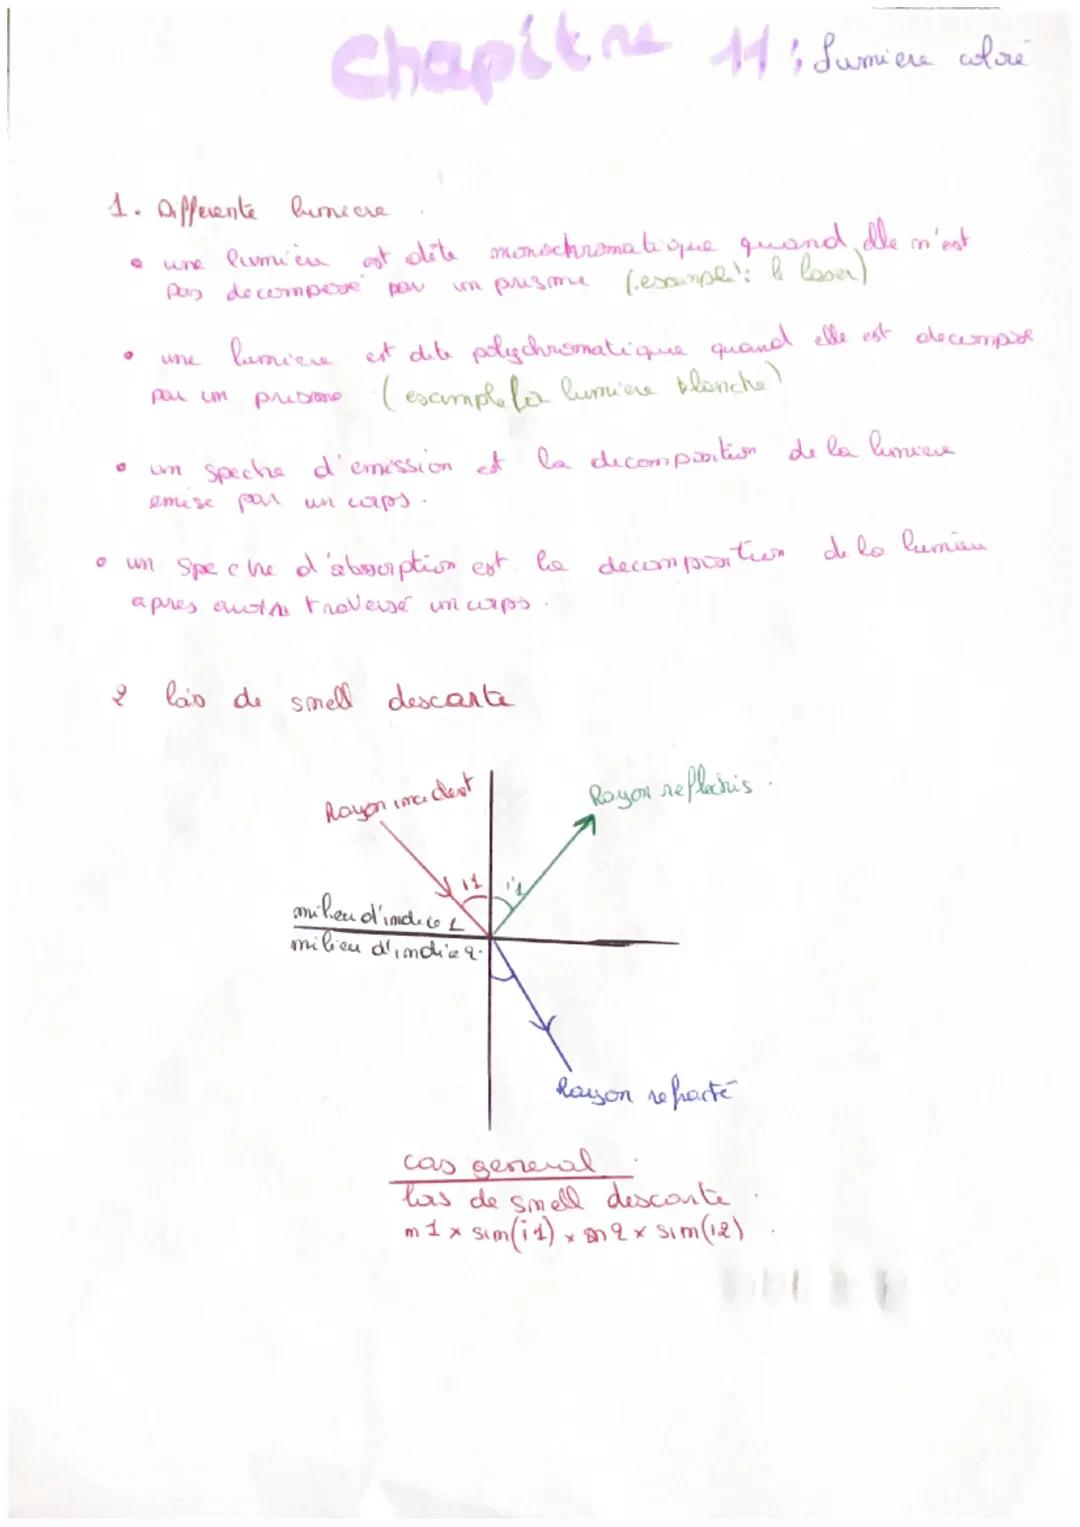 Chapitre 11 : Lumiere coloré
1. Differente lumiere
• une lumiere est dite monochromatique quand elle n'est
pas decomposé par un prisme (example : le laser)
• une lumiere est dite polychromatique quand elle est decompose
par un prisme (example la lumiere blanche)
• un spectre d'emission est la decomposition de la lumiere
emise par un corps.
• un spectre d'absorption est la decomposition de la lumiere
apres avoir traversé un corps.
2 lois de snell descarte
Rayon incident
Rayon reflechis.
i1 i'1
milieu d'indice 1
milieu d'indice 2.
Rayon refracté
cas general
lois de snell descarte
n1 x sin(i1) x n2 x sin(i2)